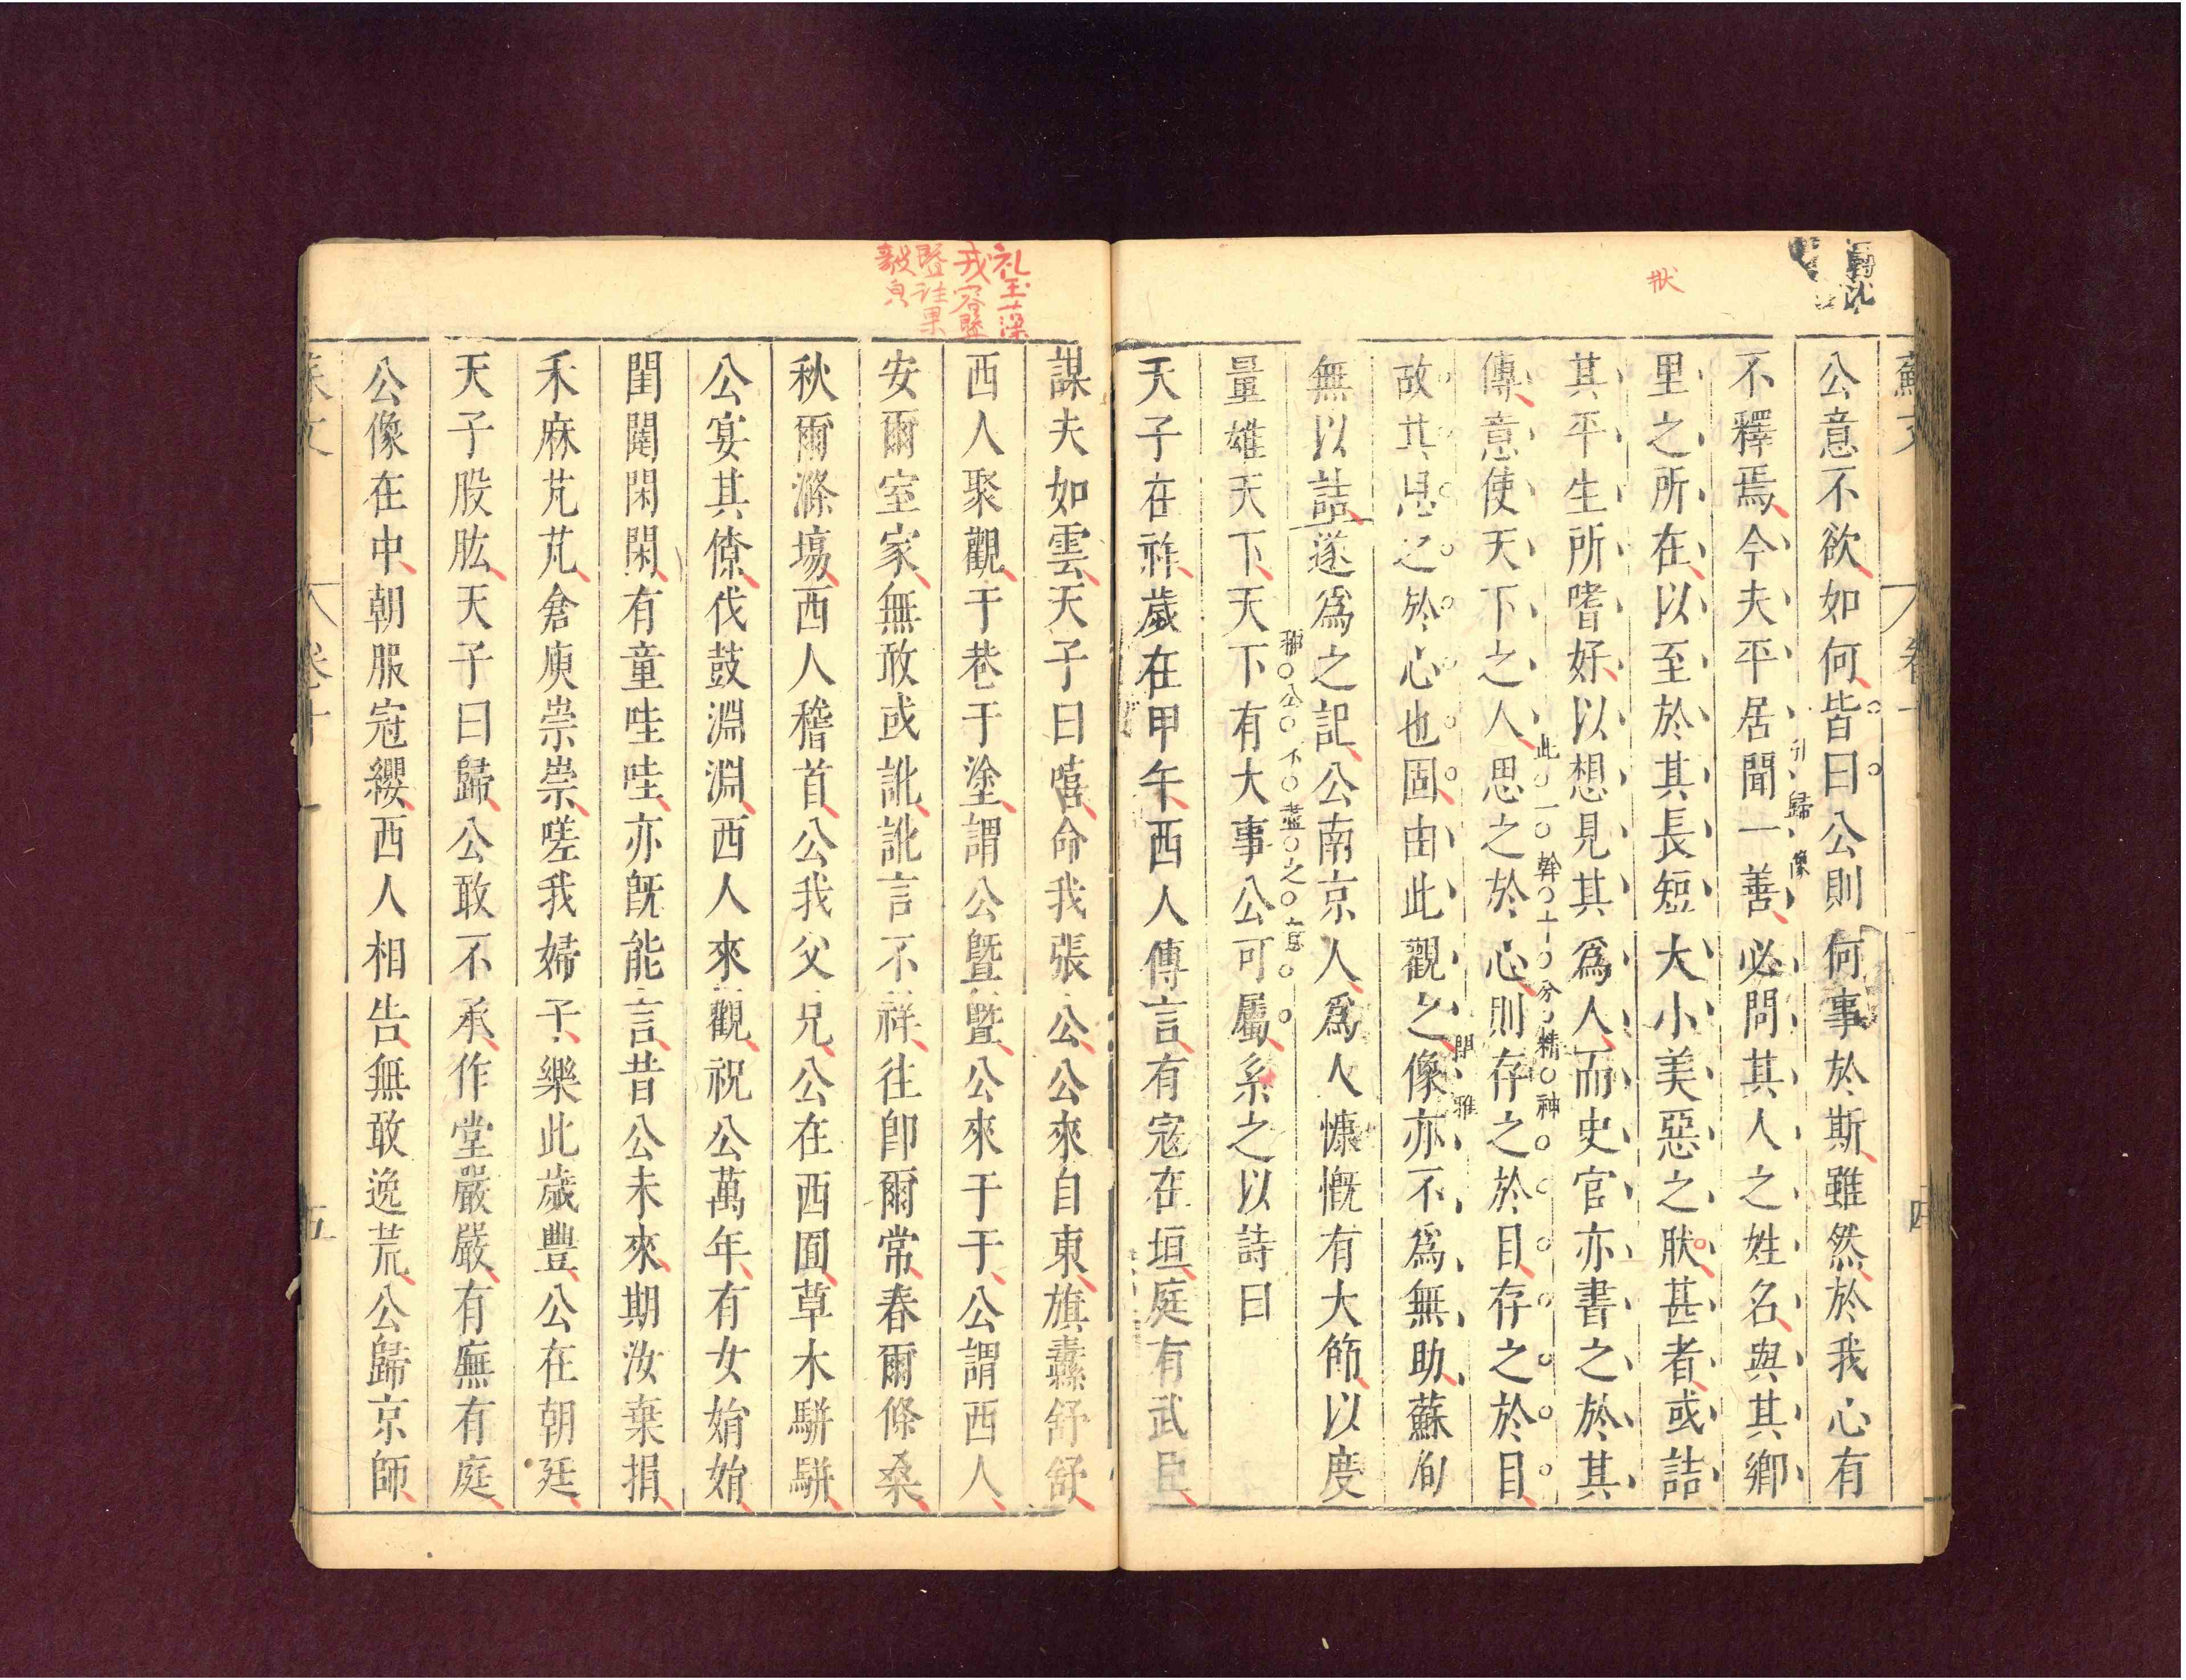 蘇文 卷十 四
公意不欲如何皆曰公則何事於斯雖然於我心有
不釋焉今夫平居聞一善必問其人之姓名與其鄉
引歸像
里之所在以至於其長短大小美惡之肰甚者或詰
狀
其平生所嗜好以想見其爲人而史官亦書之於其
此一幹十分精神
傳意使天下之人思之於心則存之於目存之於目
閒雅
故其思之於心也固由此觀之像亦不爲無助蘇洵
無以詰遂爲之記公南京人爲人慷慨有大節以度
量雄天下天下有大事公可屬系之以詩曰
天子在祚歲在甲午西人傳言有寇在垣庭有武臣
謀夫如雲天子曰嘻命我張公公來自東旗纛舒舒
西人聚觀于巷于塗謂公曁曁公來于于公謂西人
礼玉藻
戎容曁
曁註果
毅皃
安爾室家無敢或訛訛言不祥往卽爾常春爾條桑
秋爾滌場西人稽首公我父兄公在西囿草木駢駢
公宴其僚伐鼓淵淵西人來觀祝公萬年有女娟娟
閨闥閑閑有童哇哇亦旣能言昔公未來期汝棄捐
禾麻芃芃倉庾崇崇嗟我婦子樂此歲豐公在朝廷
天子股肱天子曰歸公敢不承作堂嚴嚴有廡有庭
公像在中朝服冠纓西人相告無敢逸荒公歸京師
蘇文 卷十 五